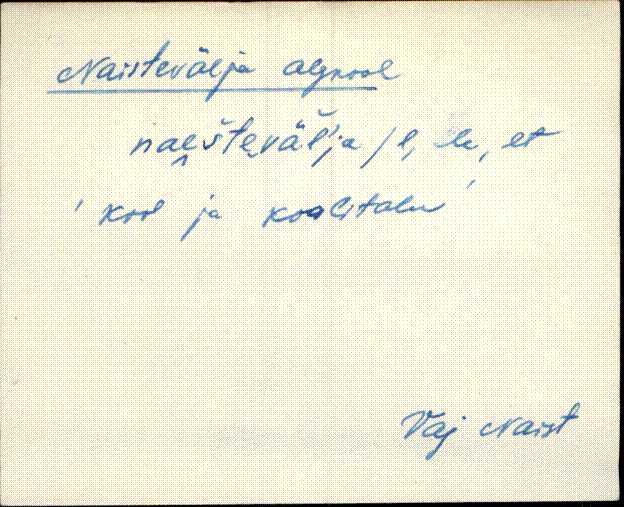 Naistevälja algkool
nae̬šte̬väĺja /l, le, et
' kool ja koolitalu '
Vaj Naist